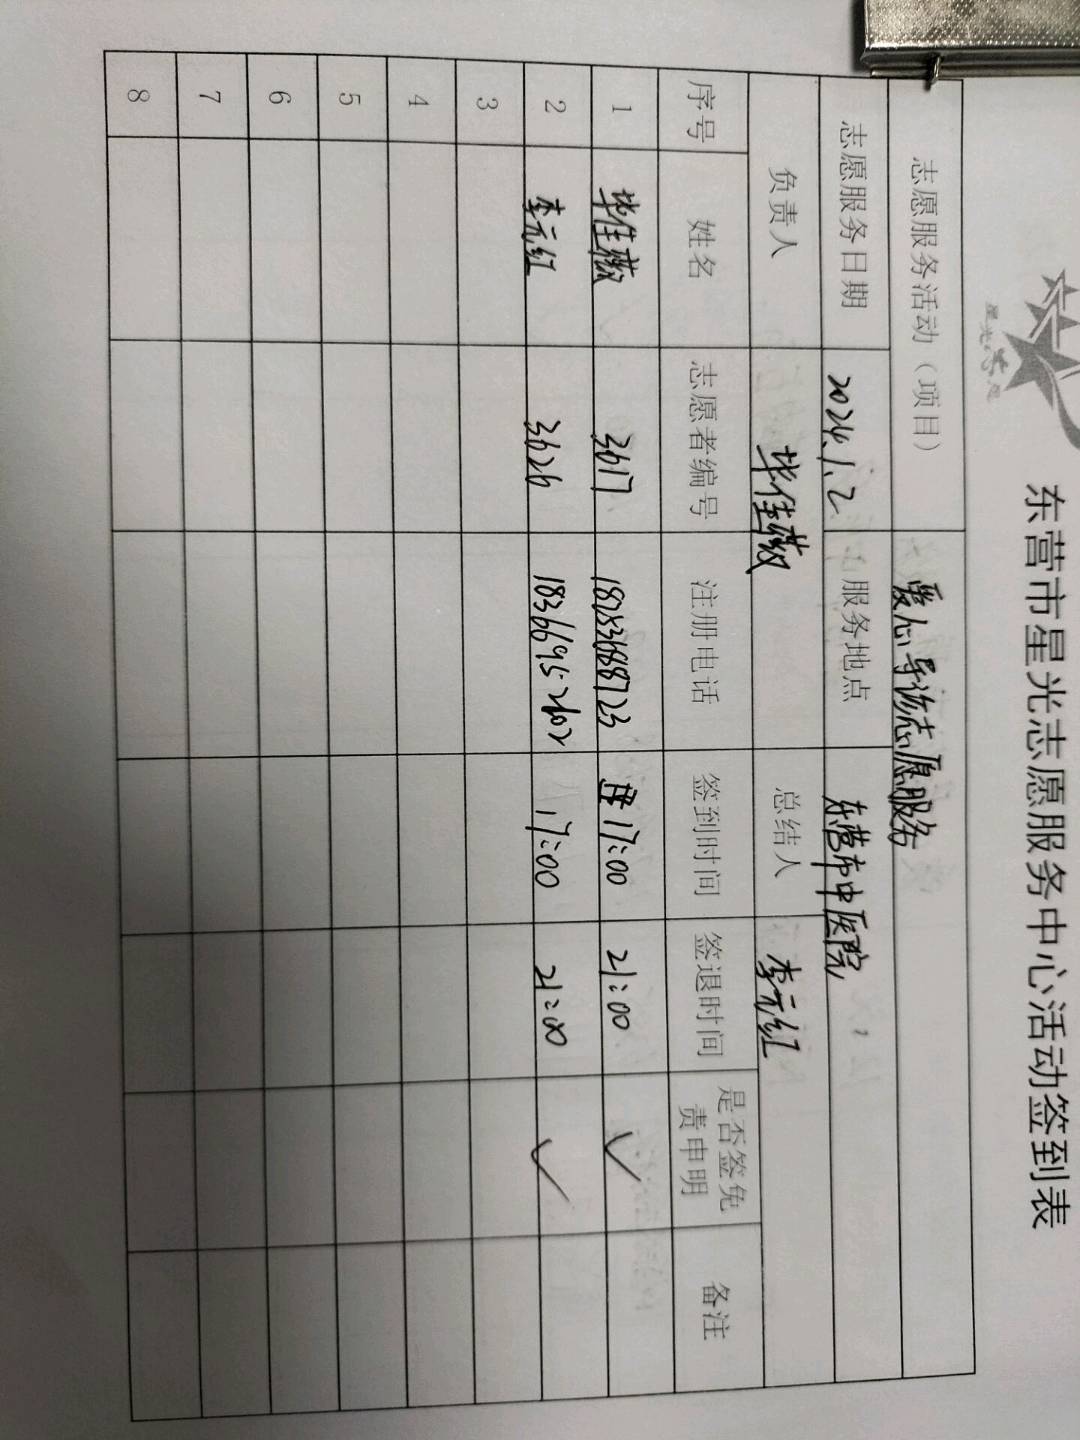 东营市星光志愿服务中心活动签到表
志愿服务活动（项目） 爱心导诊志愿服务
志愿服务日期 2024.1.2 服务地点 东营市中医院
负责人 毕佳薇 总结人 李元红
序号 姓名 志愿者编号 注册电话 签到时间 签退时间 是否签免责申明 备注
1 毕佳薇 3617 18753688723 17:00 21:00 ✓
2 李元红 3626 18366952602 17:00 21:00 ✓
3
4
5
6
7
8